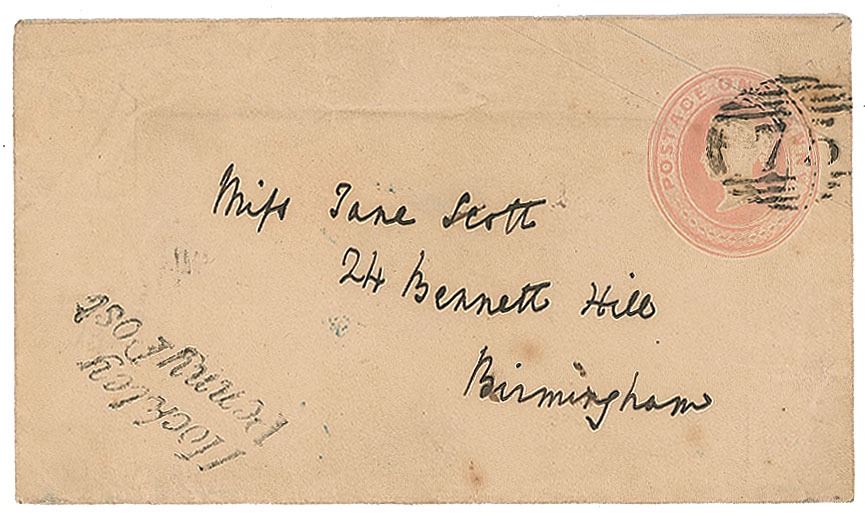 POSTAGE ONE PENNY
Miſs Jane Scott
24 Bennett Hill
Birmingham
Hockley
Penny Post